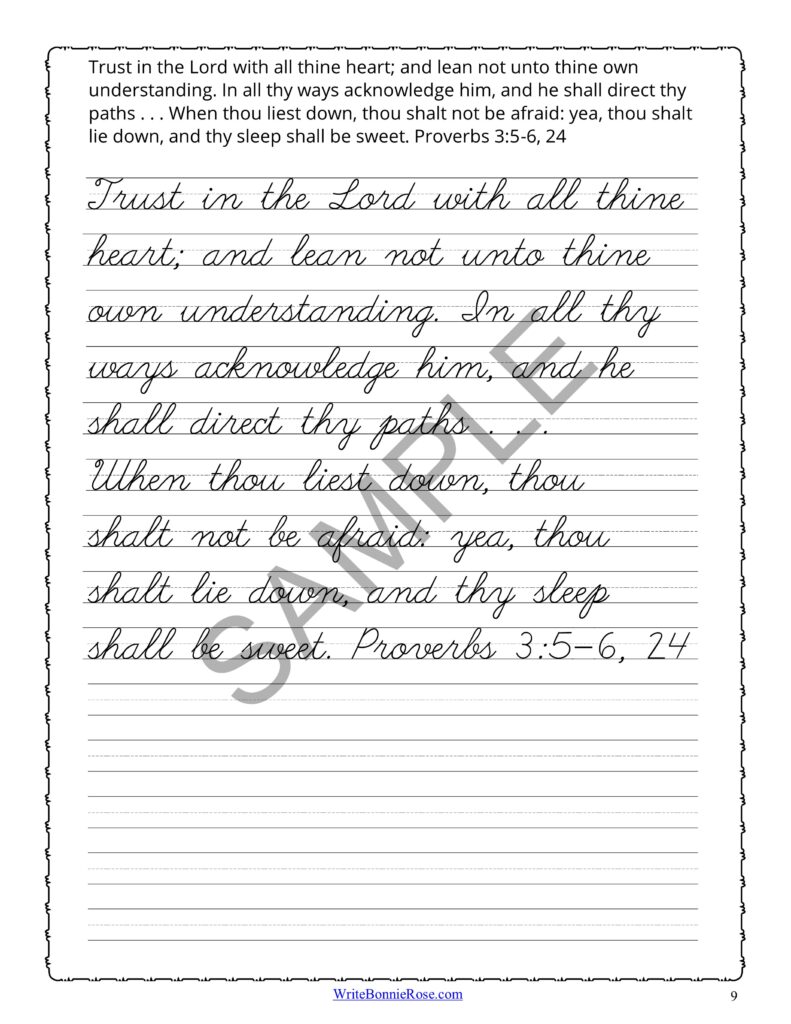 Trust in the Lord with all thine heart; and lean not unto thine own
understanding. In all thy ways acknowledge him, and he shall direct thy
paths . . . When thou liest down, thou shalt not be afraid: yea, thou shalt
lie down, and thy sleep shall be sweet. Proverbs 3:5-6, 24
Trust in the Lord with all thine
heart; and lean not unto thine
own understanding. In all thy
ways acknowledge him, and he
shall direct thy paths . . .
When thou liest down, thou
shalt not be afraid: yea, thou
shalt lie down, and thy sleep
shall be sweet. Proverbs 3:5-6, 24
SAMPLE
WriteBonnieRose.com
9